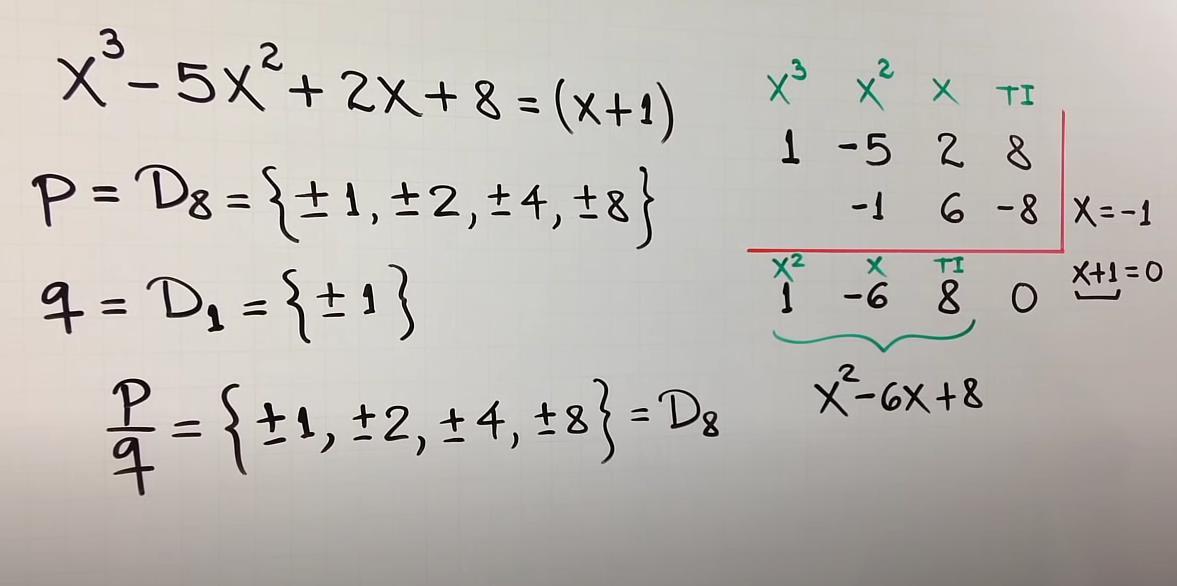 x³ - 5x² + 2x + 8 = (x+1)
P = D₈ = {±1, ±2, ±4, ±8}
q = D₁ = {±1}
P/q = {±1, ±2, ±4, ±8} = D₈
x³ x² x TI
1 -5 2 8
-1 6 -8 x=-1
x² x TI
x+1=0
1 -6 8 0
x²-6x+8